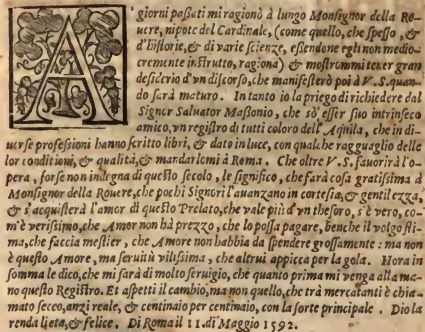 A giorni paßati mi ragionò à lungo Monsignor della Ro-
uere, nipote del Cardinale, (come quello, che speßo, &
d'historie, & di varie scienze, eßendone egli non medio-
cremente instrutto, ragiona) & mostrommi tener gran
desiderio d'vn discorso, che manifesterò poi à V. S. quan-
do sarà maturo. In tanto io la priego di richiedere dal
Signor Saluator Maßonio, che sò esser suo intrinseco
amico, vn registro di tutti coloro dell'Aquila, che in di-
uerse profeßioni hanno scritto libri, & dato in luce, con qualche ragguaglio delle
lor conditioni, & qualità, & mandarlomi à Roma. Che oltre V. S. fauorirà l'o-
pera, forse non indegna di questo secolo, le significo, che farà cosa gratißima à
Monsignor della Rouere, che pochi Signori l'auanzano in cortesia, & gentilezza,
& s'acquisterà l'amor di questo Prelato, che vale più d'vn thesoro, s'è vero, co-
m'è verißimo, che Amor non hà prezzo, che lo poßa pagare, benche il volgo sti-
ma, che faccia mestier, che Amore non habbia da spendere großamente: ma non
è questo Amore, ma seruitù vilißima, che altrui appicca per la gola. Hora in
somma le dico, che mi sarà di molto seruigio, che quanto prima mi venga alla ma-
no questo Registro. Et aspetti il cambio, ma non quello, che trà mercatanti è chia-
mato secco, anzi reale, & centinaio per centinaio, con la sorte principale. Dio la
renda lieta, & felice. Di Roma il 11. di Maggio 1592.